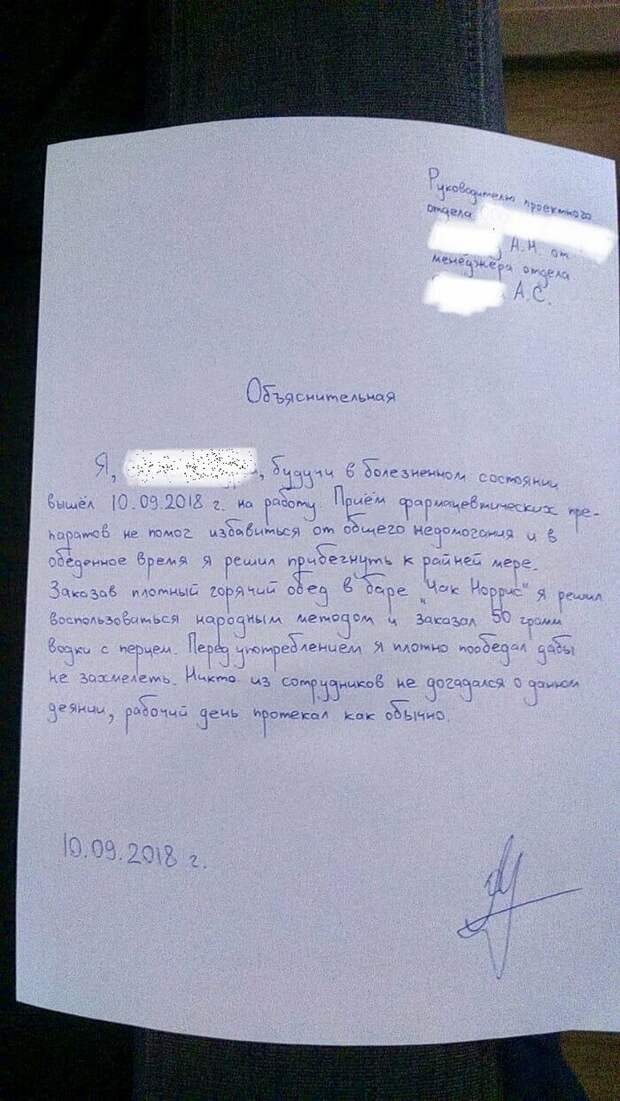 Руководителю проектного
отдела
А.Н. от
менеджера отдела
А.С.
Объяснительная
Я, , будучи в болезненном состоянии
вышел 10.09.2018 г. на работу. Приём фармацевтических пре-
паратов не помог избавиться от общего недомогания и в
обеденное время я решил прибегнуть к райней мере.
Заказав плотный горячий обед в баре "Чак Норрис" я решил
воспользоваться народным методом и заказал 50 грамм
водки с перцем. Перед употреблением я плотно пообедал дабы
не захмелеть. Никто из сотрудников не догадался о данном
деянии, рабочий день протекал как обычно.
10.09.2018 г.